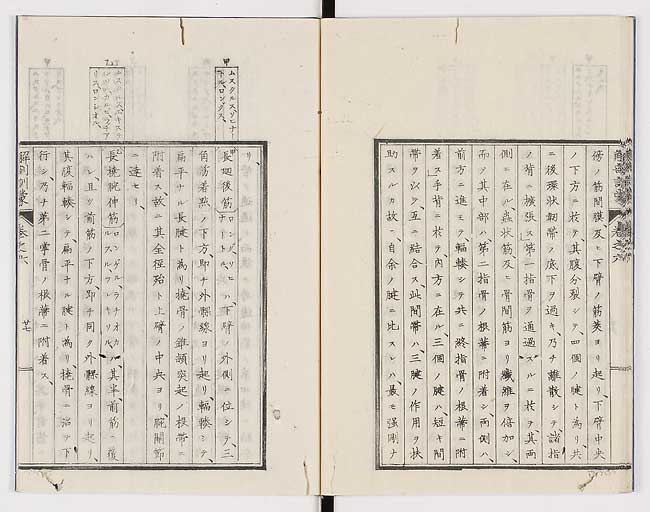 傍ノ筋間膜及ヒ下臂ノ筋莢ヨリ起リ、下臂中央
ノ下方ニ於テ、其腹分裂シテ、四個ノ腱ト為リ、共
ニ後環状靱帯ノ底下ヲ過キ、乃チ離散シテ諸指
ノ背ニ擴張ス、第一指骨ヲ通過スルニ於テ、其両
側ニ在ル、蟲状筋及ヒ骨間筋ヨリ纖維ヲ倍加シ、
而シテ其中部ハ、第二指骨ノ根蒂ニ附着シ、両側ハ、
前方ニ進ミテ、輻輳シテ共ニ終指骨ノ根蒂ニ附
着ス、手背ニ於テ、内方ニ在ル、三個ノ腱ハ、短キ間
帯ヲ以テ、互ニ結合ス、此間帯ハ、三腱ノ作用ヲ扶
助スルカ故ニ、自余ノ腱ニ比スレハ、最モ強剛ナ
リ、
甲
ムスクルス、ソピナートル、ロングス、
長廻後筋ハ、下臂ノ外側ニ位シテ、三
角筋着點ノ下方、即チ外髁線ヨリ起リ、輻輳シテ、
扁平ナル長腱ト為リ、撓骨ノ錐状突起ノ根蒂ニ
附着ス、故ニ其全徑殆ト上臂ノ中央ヨリ、腕關節
ニ達セリ、
乙
長撓腕伸筋
其半前筋ニ覆
ハレ、且ツ前筋ノ下方、即チ同ク外髁線ヨリ起リ、
其腹輻輳シテ、扁平ナル腱ト為リ、撓骨ニ沿テ下
行シ、乃チ第二掌骨ノ根蒂ニ附着ス、
解剖訓蒙
卷之六
廿七